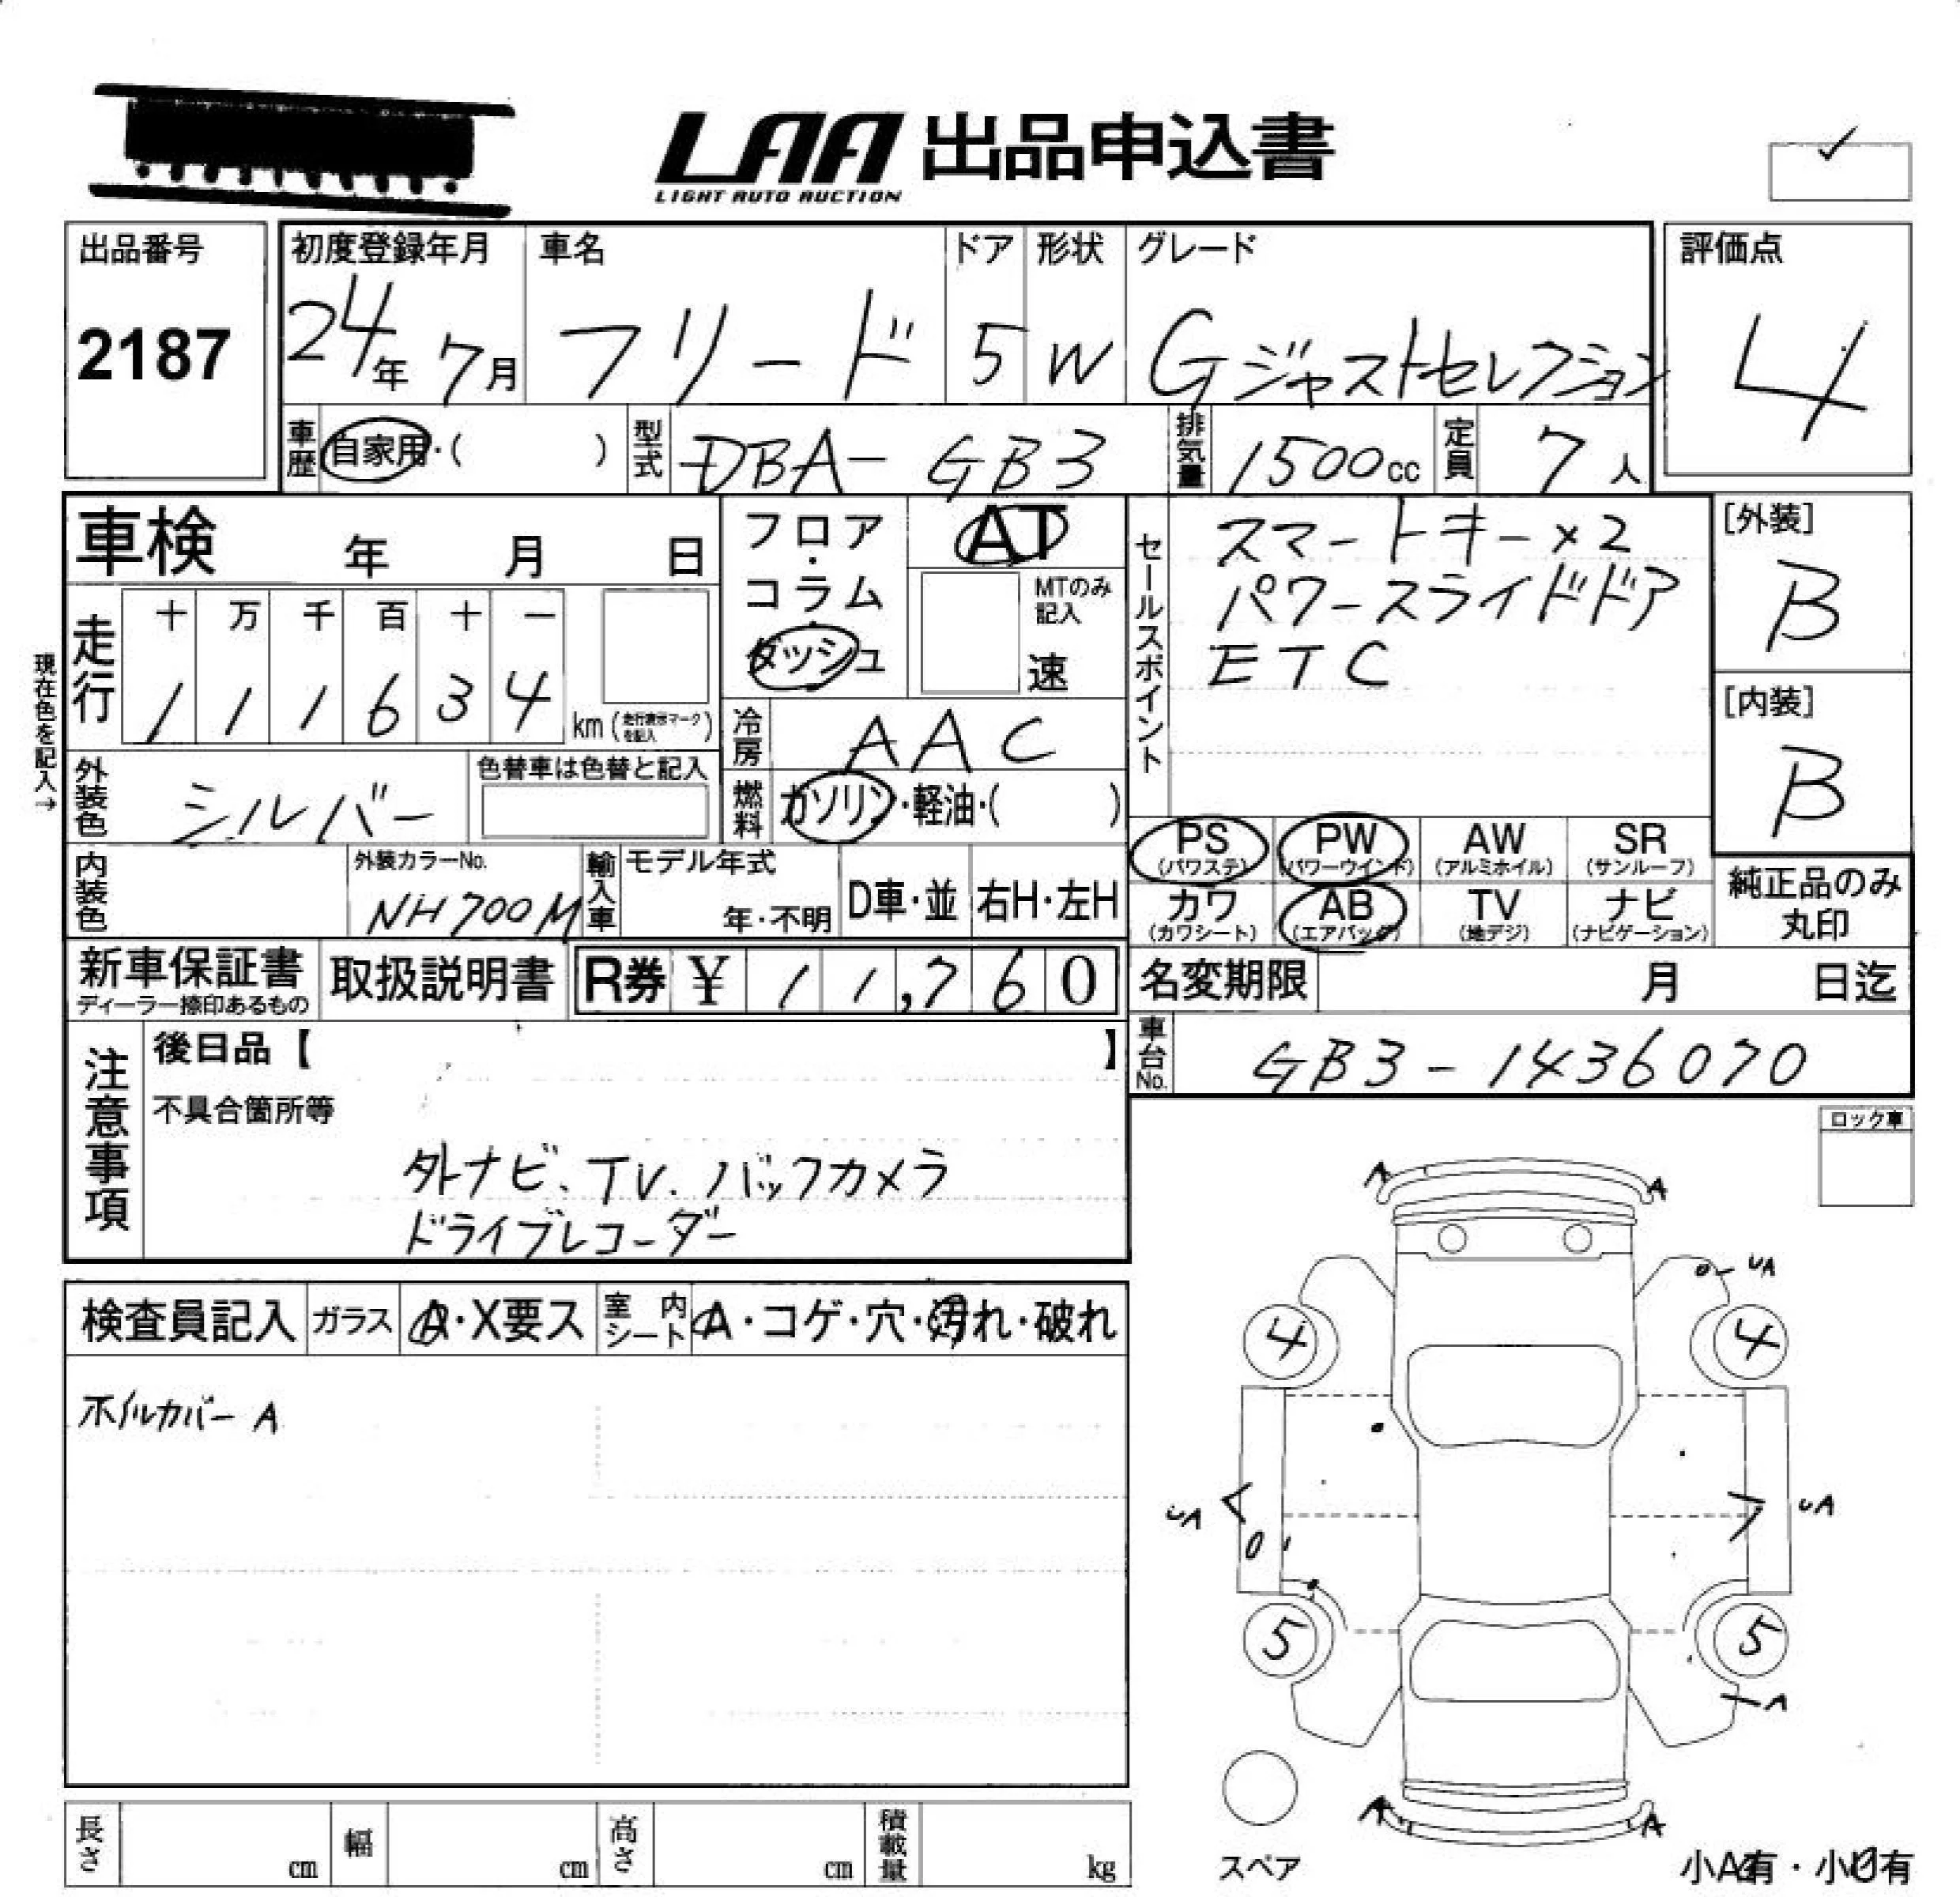 LAA 出品申込書
LIGHT AUTO AUCTION
出品番号
2187
初度登録年月
24年 7月
車名
フリード
ドア
5
形状
W
グレード
Gジャストセレクション
評価点
4
車歴
自家用・( )
型式
DBA-GB3
排気量
1500cc
定員
7人
車検 年 月 日
フロア・コラム・ダッシュ
AT
MTのみ記入
速
セールスポイント
スマートキー×2
パワースライドドア
ETC
[外装]
B
[内装]
B
現在色を記入→
走行
十 万 千 百 十 一
1 1 1 6 3 4 km (走行表示マークを記入)
冷房
AAC
外装色
シルバー
色替車は色替と記入
燃料
ガソリン・軽油・( )
PS (パワステ)
PW (パワーウインド)
AW (アルミホイル)
SR (サンルーフ)
カワ (カワシート)
AB (エアバッグ)
TV (地デジ)
ナビ (ナビゲーション)
純正品のみ丸印
内装色
外装カラーNo.
NH700M
輸入車
モデル年式
年・不明
D車・並
右H・左H
新車保証書
ディーラー捺印あるもの
取扱説明書
R券 ¥ 11,760
名変期限 月 日迄
車台No.
GB3-1436070
注意事項
後日品【 】
不具合箇所等
外ナビ、TV、バックカメラ
ドライブレコーダー
ロック車
検査員記入
ガラス
A・X要ス
室内シート
A・コゲ・穴・汚れ・破れ
ホイルカバー A
A
A
UA
4
4
UA
UA
5
5
A
A
A
スペア
小A有・小U有
長さ cm
幅 cm
高さ cm
積載量 kg